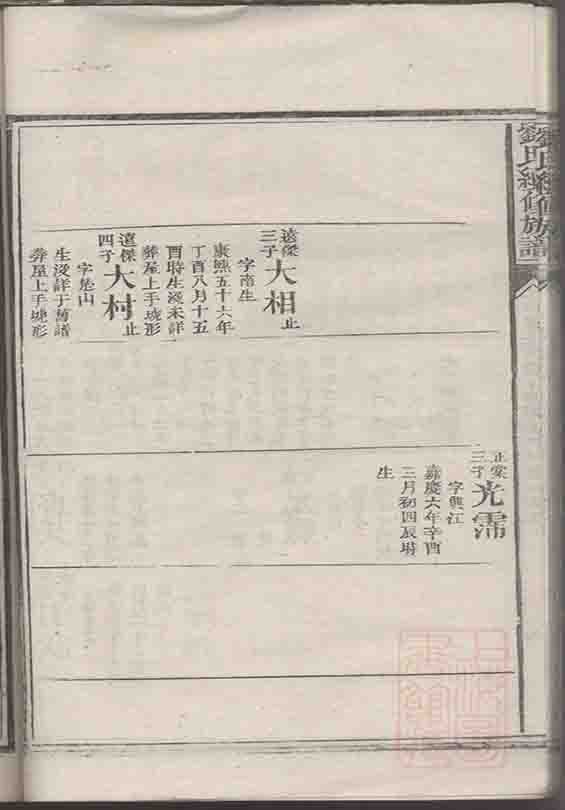 劉氏續修族譜
遠傑三子大相止
字南生
康熙五十六年
丁酉八月十五
酉時生歿未詳
葬屋上手塝形
遠傑四子大村止
生歿詳于舊譜
葬屋上手塝形
止棠三子光霈
字興江
嘉慶六年辛酉
三月初四辰時
生